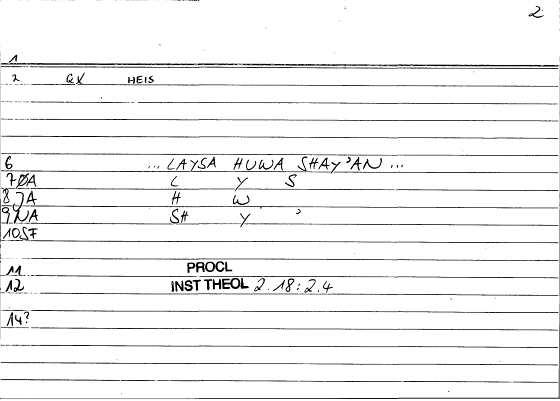 2
1
2 GX HEIS
6 ... LAYSA HUWA SHAY'AN ...
7ØA L Y S
8JA H W
9NA SH Y '
10SF
11 PROCL
12 INST THEOL 2.18:2.4
14?